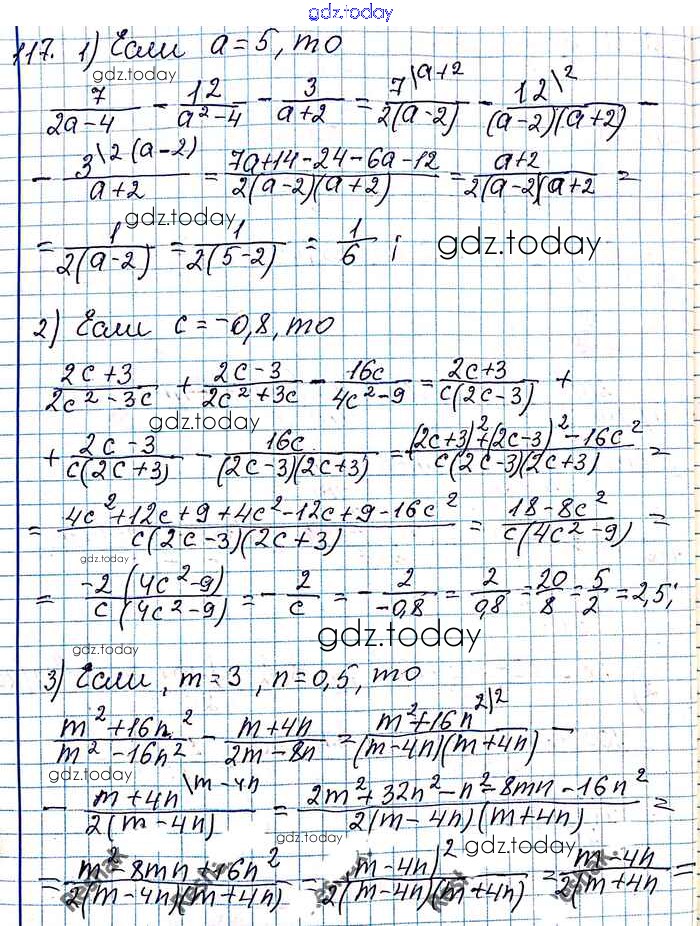 gdz.today
117. 1) Если a = 5, то
gdz.today
7/(2a-4) - 12/(a²-4) - 3/(a+2) = 7\a+2/(2(a-2)) - 12\2/((a-2)(a+2)) -
- 3\2(a-2)/(a+2) = (7a+14-24-6a-12)/(2(a-2)(a+2)) = (a+2)/(2(a-2)(a+2 =
gdz.today
= 1/(2(a-2)) = 1/(2(5-2)) = 1/6 ; gdz.today
2) Если c = -0,8, то
(2c+3)/(2c²-3c) + (2c-3)/(2c²+3c) - 16c/(4c²-9) = (2c+3)/(c(2c-3)) +
gdz.today
+ (2c-3)/(c(2c+3)) - 16c/((2c-3)(2c+3)) = ((2c+3)²+(2c-3)²-16c²)/(c(2c-3)(2c+3)) =
= (4c²+12c+9+4c²-12c+9-16c²)/(c(2c-3)(2c+3)) = (18-8c²)/(c(4c²-9)) =
gdz.today
= -2(4c²-9)/(c(4c²-9)) = -2/c = -2/(-0,8) = 2/0,8 = 20/8 = 5/2 = 2,5;
gdz.today
gdz.today
3) Если, m = 3, n = 0,5, то
(m²+16n²)/(m²-16n²) - (m+4n)/(2m-8n) = (m²+16n²\2)/((m-4n)(m+4n)) -
gdz.today
- (m+4n\m-4n)/(2(m-4n)) = (2m²+32n²-n²-8mn-16n²)/(2(m-4n)(m+4n)) =
gdz.today
= (m²-8mn+16n²)/(2(m-4n)(m+4n)) = (m-4n)²/(2(m-4n)(m+4n)) = (m-4n)/(2(m+4n =